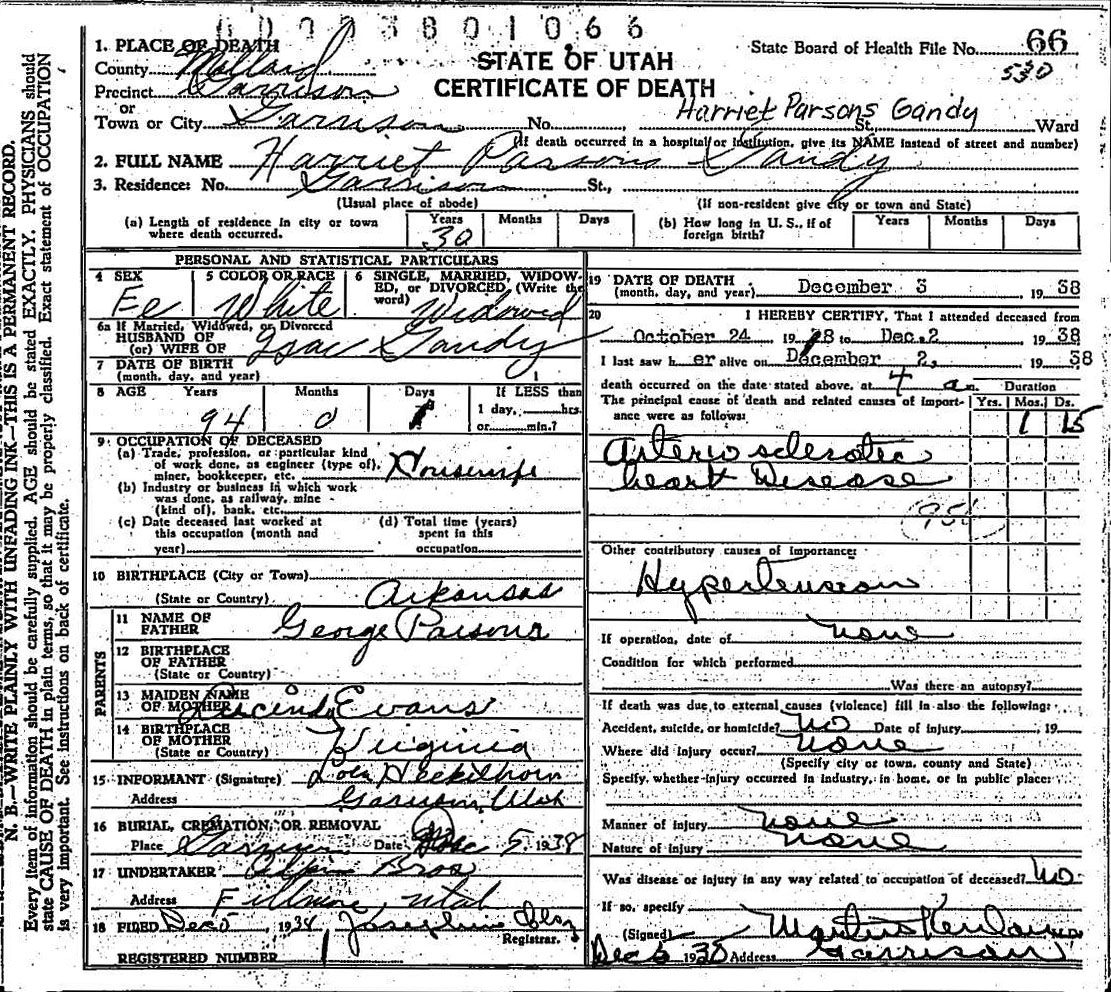 0003801066
1. PLACE OF DEATH
County Millard
Precinct Garrison
or
Town or City Garrison No. St. Ward
STATE OF UTAH
CERTIFICATE OF DEATH
State Board of Health File No. 66
530
Harriet Parsons Gandy
(If death occurred in a hospital or institution, give its NAME instead of street and number)
2. FULL NAME Harriet Parsons Gandy
3. Residence: No. Garrison St.,
(Usual place of abode) (If non-resident give city or town and State)
(a) Length of residence in city or town where death occurred. Years 30 Months Days
(b) How long in U. S., if of foreign birth? Years Months Days
PERSONAL AND STATISTICAL PARTICULARS
4 SEX Fe
5 COLOR OR RACE White
6 SINGLE, MARRIED, WIDOWED, or DIVORCED (Write the word) Widowed
6a If Married, Widowed, or Divorced
HUSBAND OF
(or) WIFE OF Isac Gandy
7 DATE OF BIRTH
(month, day, and year)
8 AGE Years 94 Months 0 Days
If LESS than
1 day, hrs.
or min.?
9 OCCUPATION OF DECEASED
(a) Trade, profession, or particular kind
of work done, as engineer (type of),
miner, bookkeeper, etc. Housewife
(b) Industry or business in which work
was done, as railway, mine
(kind of), bank, etc.
(c) Date deceased last worked at
this occupation (month and
year)
(d) Total time (years)
spent in this
occupation
10 BIRTHPLACE (City or Town)
(State or Country) Arkansas
PARENTS
11 NAME OF
FATHER George Parsons
12 BIRTHPLACE
OF FATHER
(State or Country)
13 MAIDEN NAME
OF MOTHER Lucinda Evans
14 BIRTHPLACE
OF MOTHER
(State or Country) Virginia
15 INFORMANT (Signature)
Address Garrison, Utah
16 BURIAL, CREMATION, OR REMOVAL
Place Garrison Date Dec 5, 1938
17 UNDERTAKER Bros
Address Fillmore Utah
18 FILED Dec 5, 193 Josephine
Registrar.
REGISTERED NUMBER 1
19 DATE OF DEATH
(month, day, and year) December 3 1938
20 I HEREBY CERTIFY, That I attended deceased from
October 24 19 8 to Dec. 2 1938
I last saw her alive on December 2, 1938
death occurred on the date stated above, at 4 a m.
The principal cause of death and related causes of importance were as follows:
Duration
Yrs. Mos. Ds.
1 15
Arterio sclerotic
heart Disease
Other contributory causes of importance:
Hypertension
If operation, date of none
Condition for which performed
Was there an autopsy?
If death was due to external causes (violence) fill in also the following:
Accident, suicide, or homicide? No Date of injury , 19
Where did injury occur? None
(Specify city or town, county and State)
Specify, whether injury occurred in industry, in home, or in public place:
Manner of injury none
Nature of injury none
Was disease or injury in any way related to occupation of deceased? No
If so, specify
(Signed)
Dec 5 193 Address Garrison
N. B.—WRITE PLAINLY WITH UNFADING INK—THIS IS A PERMANENT RECORD.
Every item of information should be carefully supplied. AGE should be stated EXACTLY. PHYSICIANS should
state CAUSE OF DEATH in plain terms, so that it may be properly classified. Exact statement of OCCUPATION
is very important. See instructions on back of certificate.